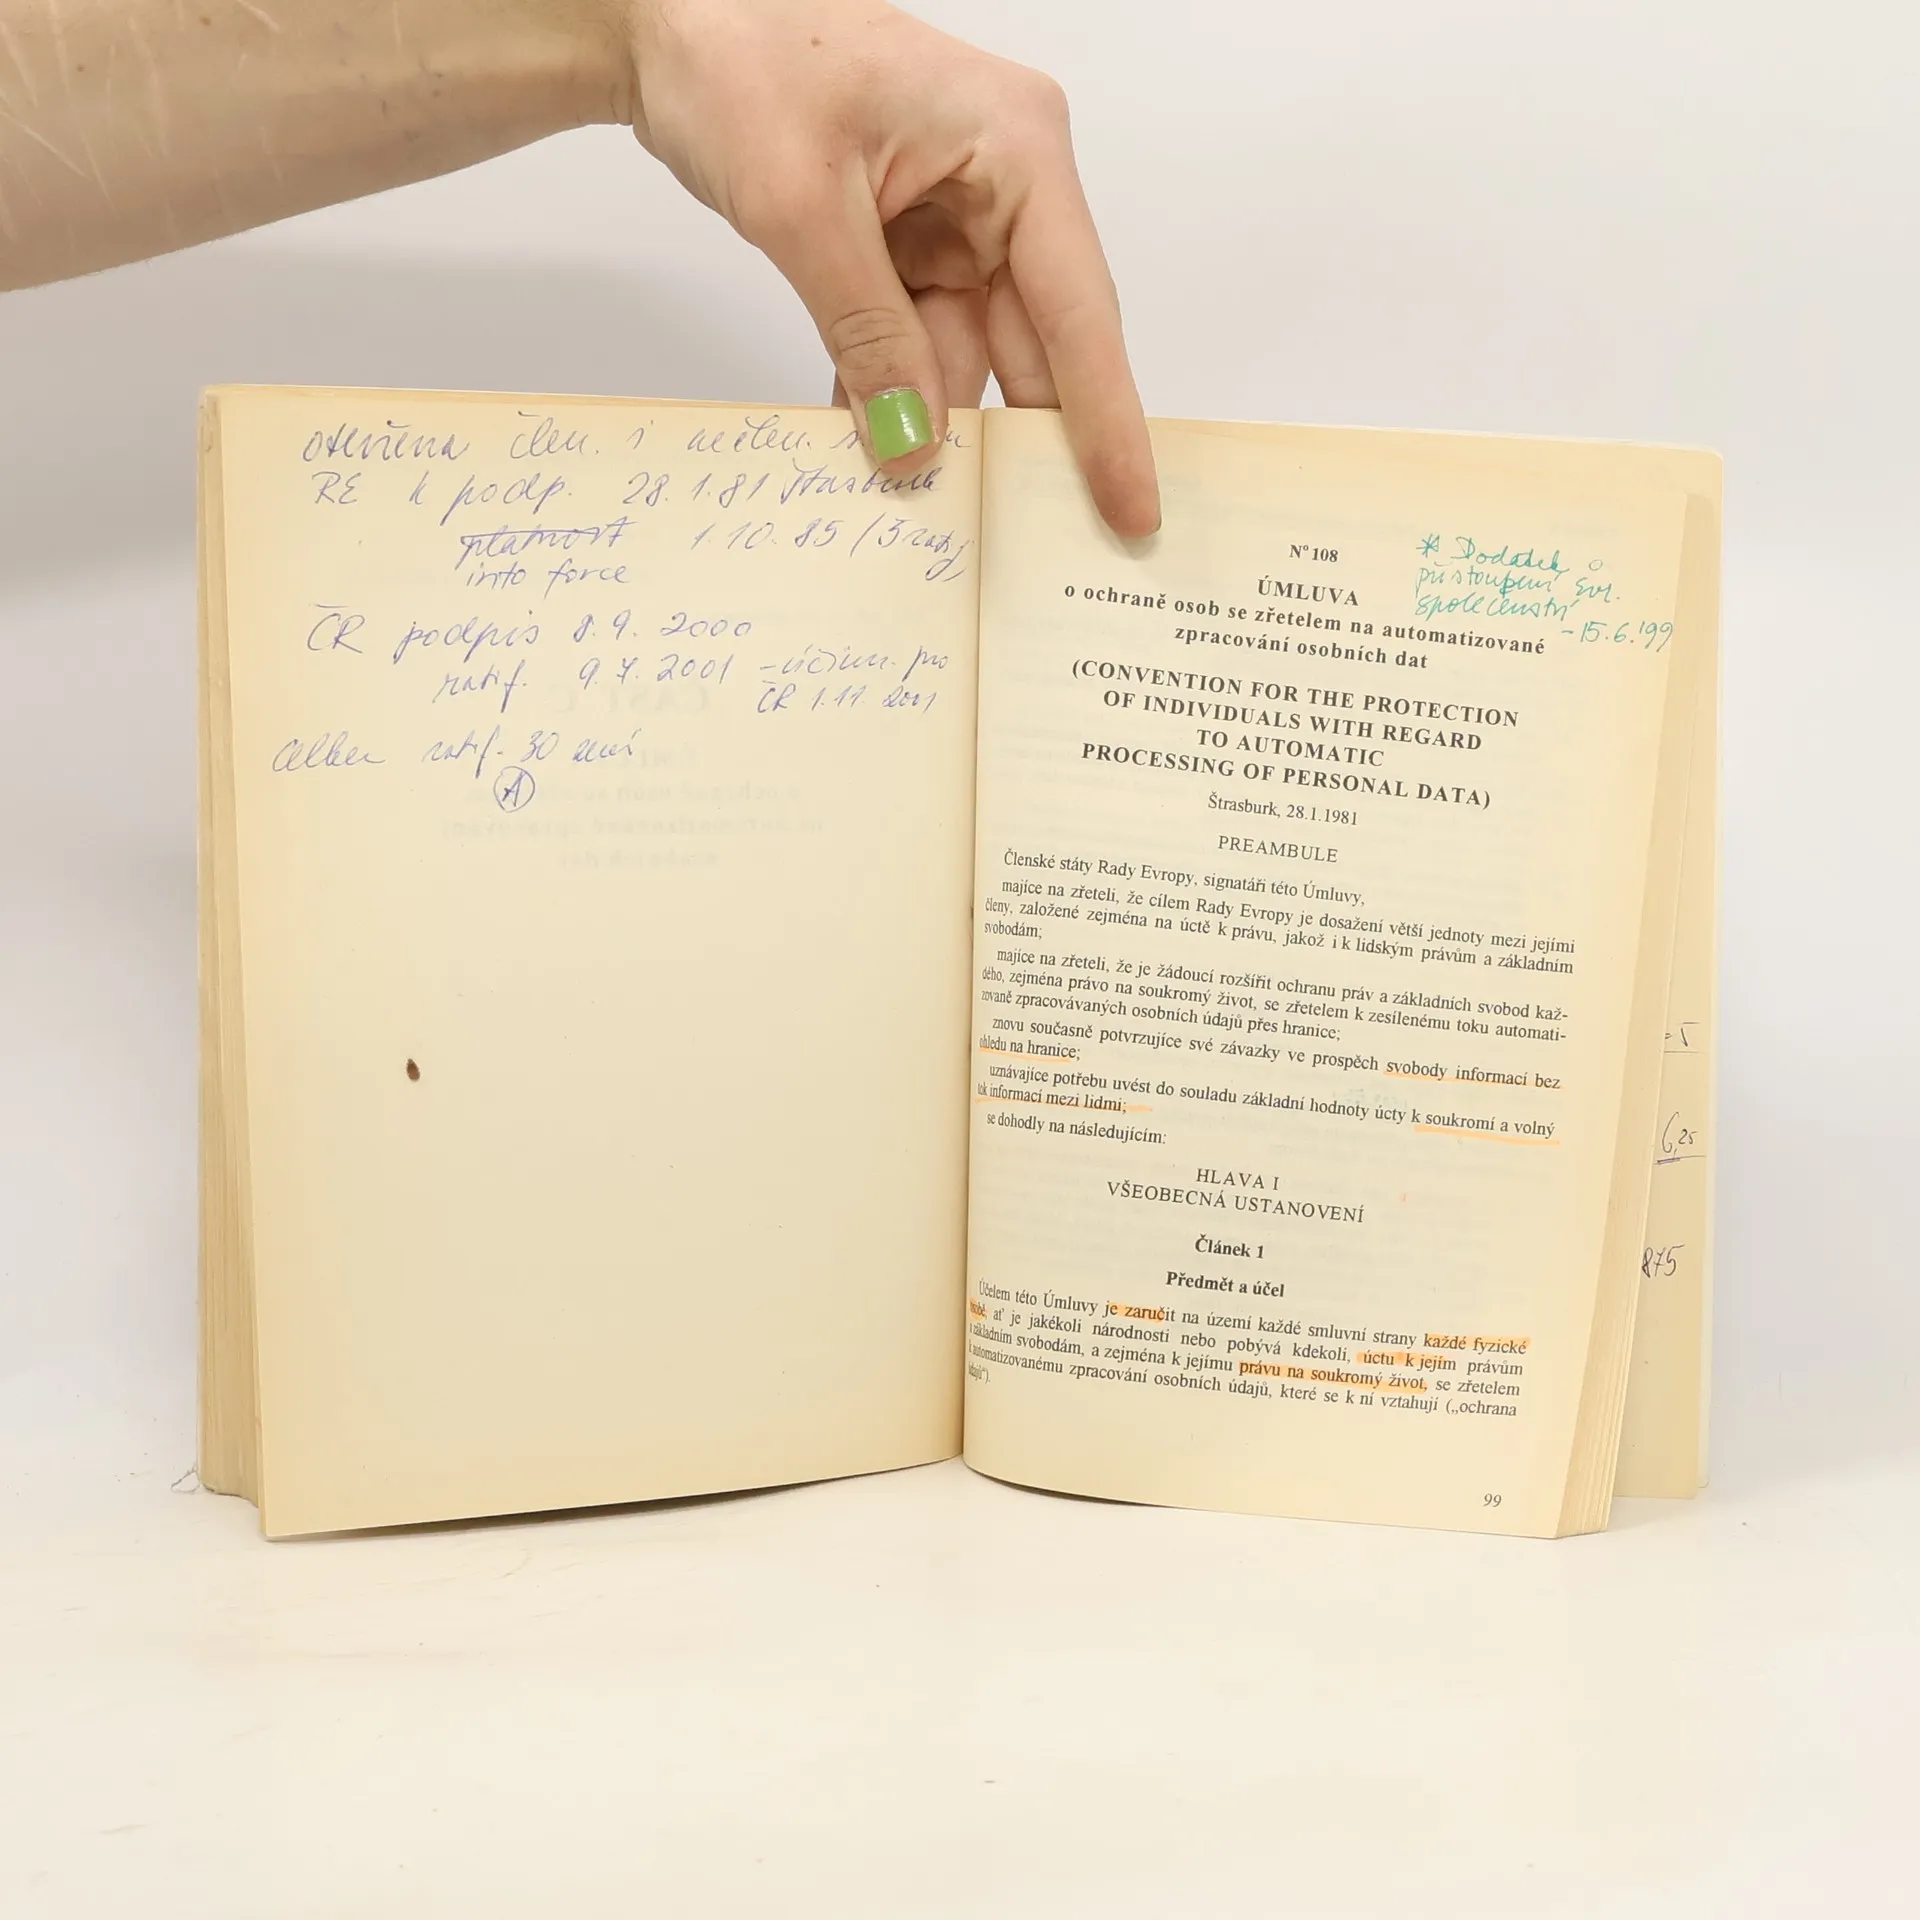 otevřena člen. i nečlen.
RE k podp. 28.1.81 Štrasburk
platnost 1.10.85 (5 ratif.)
into force
ČR podpis 8.9.2000
ratif. 9.7.2001 – účinn. pro
ČR 1.11.2001
celkem ratif. 30 zemí
A
N° 108
* Dodatek o
přistoupení Evr.
společenství
- 15.6.'99
ÚMLUVA
o ochraně osob se zřetelem na automatizované
zpracování osobních dat
(CONVENTION FOR THE PROTECTION
OF INDIVIDUALS WITH REGARD
TO AUTOMATIC
PROCESSING OF PERSONAL DATA)
Štrasburk, 28.1.1981
PREAMBULE
Členské státy Rady Evropy, signatáři této Úmluvy,
majíce na zřeteli, že cílem Rady Evropy je dosažení větší jednoty mezi jejími
členy, založené zejména na úctě k právu, jakož i k lidským právům a základním
svobodám;
majíce na zřeteli, že je žádoucí rozšířit ochranu práv a základních svobod kaž-
dého, zejména právo na soukromý život, se zřetelem k zesílenému toku automati-
zovaně zpracovávaných osobních údajů přes hranice;
znovu současně potvrzujíce své závazky ve prospěch svobody informací bez
ohledu na hranice;
uznávajíce potřebu uvést do souladu základní hodnoty úcty k soukromí a volný
tok informací mezi lidmi;
se dohodly na následujícím:
HLAVA I
VŠEOBECNÁ USTANOVENÍ
Článek 1
Předmět a účel
Účelem této Úmluvy je zaručit na území každé smluvní strany každé fyzické
osobě, ať je jakékoli národnosti nebo pobývá kdekoli, úctu k jejím právům
a základním svobodám, a zejména k jejímu právu na soukromý život, se zřetelem
k automatizovanému zpracování osobních údajů, které se k ní vztahují („ochrana
údajů“).
99
= 5
6,25
875